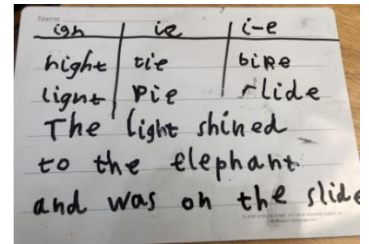 Name
igh ie i-e
night tie bike
light pie slide
The light shined
to the elephant
and was on the slide